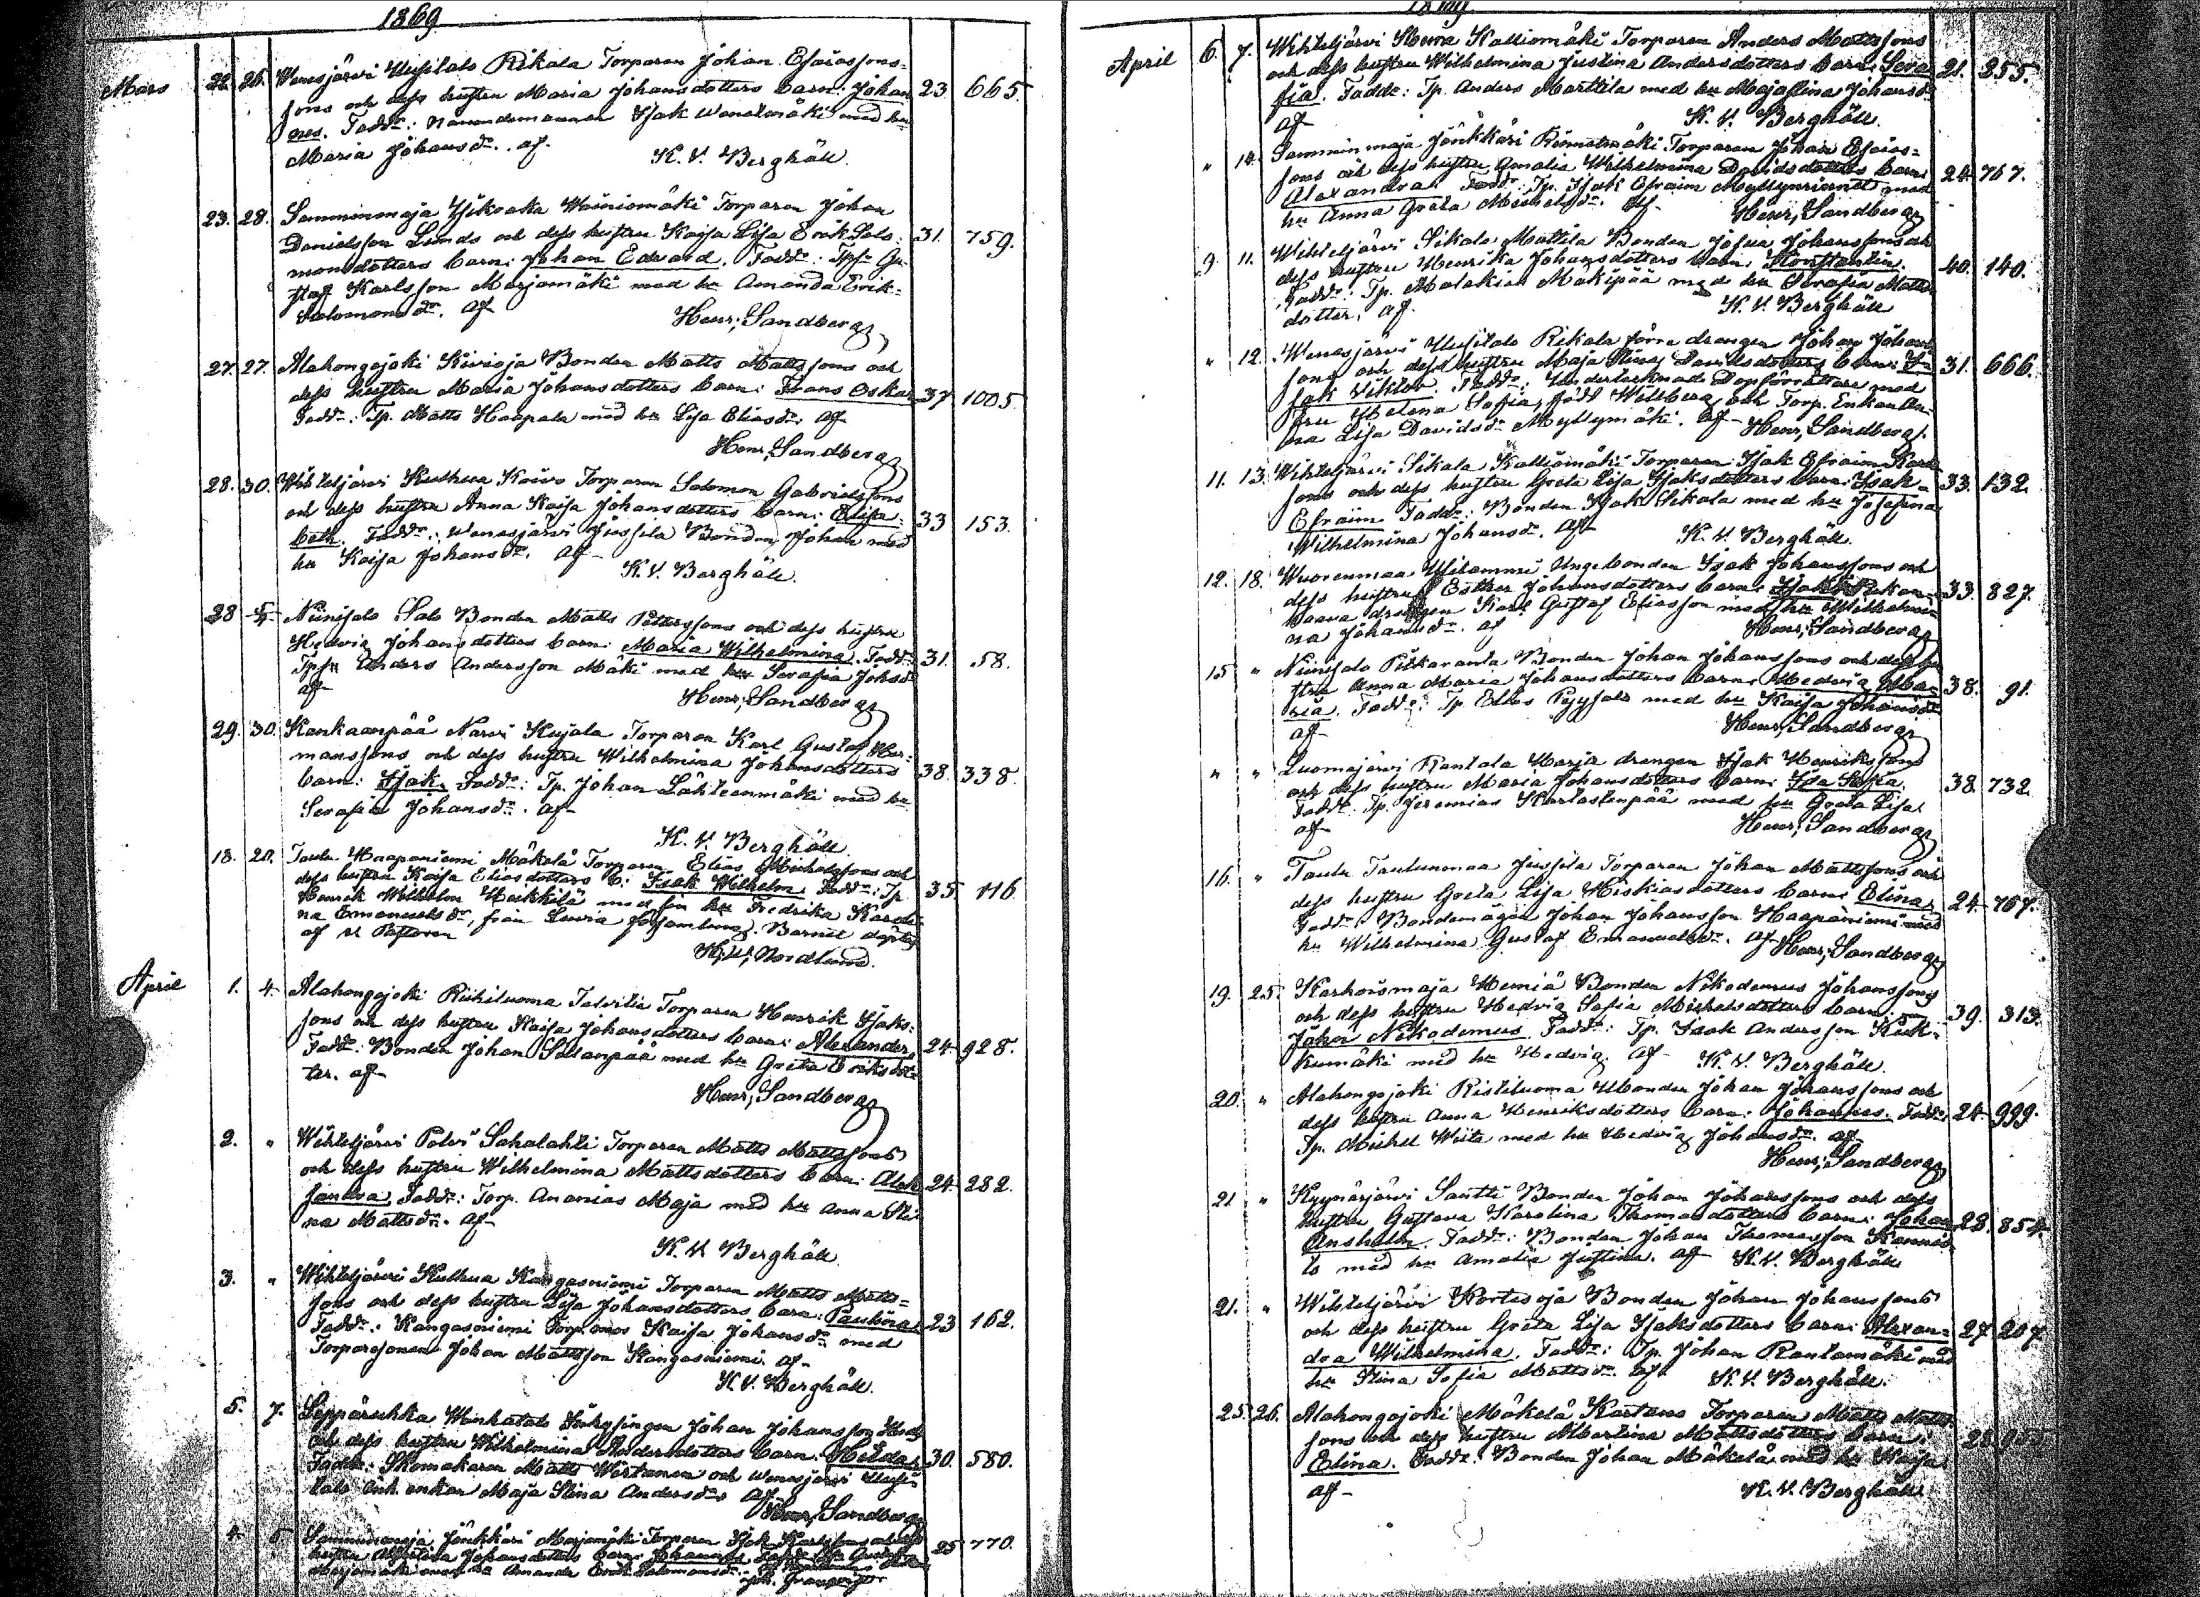 1869
Mars 22. 26. Wenesjärvi Uusitalo Rikala Torparen Johan Esaiasson-
sons och dess hustru Maria Johansdotters barn: Johan- 23 665.
nes. Fadd:r: Nämndemannen Isak Wenelmäki med hu
Maria Johansd:r. af
K. V. Berghäll.
23. 28. Samminmaja Ylikoska Wäiniomäki Torparen Johan
Danielsson Lunds och dess hustru Kaisa Lisa Erik Salo- 31. 759.
monsdotters barn: Johan Edvard. Fadd:r: Tpsn Gu-
staf Karlsson Marjamäki med hu Amanda Erik-
Salomonsd:r. af
Henr; Sandberg
27. 27. Alahongojoki Kivioja Bonden Matts Mattssons och
dess hustru Maria Johansdotters barn: Frans Oskar 37 1005
Fadd:r: Tp. Matts Haapala med hu Lisa Eliasd:r. af
Henr; Sandberg
28. 30. Wihteljärvi Kuthua Koivo Torparen Salomon Gabrielssons
och dess hustru Anna Kaisa Johansdotters barn: Elisa- 33 153.
beth. Fadd:r: Wenesjärvi Jussila Bonden Johan med
hu Kaisa Johansd:r. af
K. V. Berghäll.
28 5/4 Niinisalo Salo Bonden Matts Petterssons och dess hustru
Hedvig Johansdotters barn: Maria Wilhelmina. Fadd:r 31. 58.
Tpsn Anders Andersson Mäki med hu Serafia Johsd:r
af
Henr; Sandberg
29. 30. Kankaanpää Narvi Kujala Torparen Karl Gustaf Her-
manssons och dess hustru Wilhelmina Johansdotters 38. 338.
barn: Isak. Fadd:r: Tp. Johan Lähteenmäki med hu
Serafia Johansd:r. af
K. V. Berghäll.
18. 20. Taulu Haapaniemi Mäkelä Torparen Elias Michelssons och
dess hustru Kaisa Eliasdotters b: Isak Wilhelm. Fadd:r: Tp. 35. 116.
Henrik Wilhelm Heikkilä med sin hu Fredrika Karoli-
na Emanuelsd:r, från Lavia församling. Barnet döptes
af V. Pastoren
H. W. Nordlund.
April 1. 4. Alahongojoki Riihiluoma Talvitie Torparen Henrik Isaks-
sons och dess hustru Kaisa Johansdotters barn: Alexander. 24 928.
Fadd:r: Bonden Johan Sillanpää med hu Greta Eriksdot-
ter. af
Henr; Sandberg
2. " Wihteljärvi Polvi Sahalahti Torparen Matts Mattssons
och dess hustru Wilhelmina Mattsdotters barn: Alek- 24 282.
sandra. Fadd:r: Torp. Ananias Maja med hu Anna Sti-
na Mattsd:r. af
K. V. Berghäll
3. " Wihteljärvi Kuthua Kangasniemi Torparen Matts Matts-
sons och dess hustru Lisa Johansdotters barn: Paulina. 23 162.
Fadd:r: Kangasniemi Torp. mor Kaisa Johansd:r med
Torparesonen Johan Mattsson Kangasniemi. af
K. V. Berghäll.
5. 7. Leppäruhka Wenhatalo Inhysingen Johan Johansson
och dess hustru Wilhelmina Andersdotters barn: Hilda. 30. 580.
Fadd:r: Skomakaren Matts Wirtanen och Wenesjärvi Uusi-
talo inh. enkan Maja Stina Andersd:r. af
Henr; Sandberg
4. 5 Samminmaja Jänkkäri Marjamäki Torparen Isak Karlssons och dess
hustru Johansdotters barn: Johannes. Fadd:r: 25 770.
Marjamäki med hu Amanda Erik Salomonsd:r.
1869
April 6. 7. Wihteljärvi Hura Kalliomäki Torparen Anders Mattssons
och dess hustru Wilhelmina Justina Andersdotters barn: Sera- 21. 255.
fia. Fadd:r: Tp. Anders Marttila med hu Majastina Johansd:r
af
K. V. Berghäll.
" 14. Samminmaja Jänkkäri Rinnetmäki Torparen Johan Esaias-
sons och dess hustru Amalia Wilhelmina Davidsdotters barn: 24 767.
Alexandra. Fadd:r: Tp. Isak Efraim Myllyniemi med
hu Anna Greta Michelsd:r. af
Henr; Sandberg
9. 11. Wihteljärvi Sikala Mattila Bonden Josua Johanssons och
dess hustru Henrika Johansdotters barn: Konstantin. 40. 140.
Fadd:r: Tp. Malakias Mäkipää med hu Serafia Matts-
dotter. af
K. V. Berghäll
" 12. Wenesjärvi Uusitalo Rikala förra drängen Johan Johans-
sons och dess hustru Maja Stina Davidsdotters barn: I- 31. 666.
sak Viktor. Fadd:r: Undertecknade Dopförrättare med
fru Helena Sofia, född Willberg och Torp. Enkan An-
na Lisa Davidsd:r Myllymäki. af Henr; Sandberg.
11. 13. Wihteljärvi Sikala Kalliomäki Torparen Isak Efraim Karls-
sons och dess hustru Greta Lisa Isaksdotters barn: Isak- 33. 132.
Efraim. Fadd:r: Bonden Isak Sikala med hu Josefina
Wilhelmina Johansd:r. af
K. V. Berghäll.
12. 18. Wuorenmaa Ylitammi Ungebonden Isak Johanssons och
dess hustru Esther Johansdotters barn: Isak 33. 827.
drängen Karl Gustaf Eliasson med hu Wilhelmi-
na Johansd:r. af
Henr; Sandberg
15 " Niinisalo Pitkäranta Bonden Johan Johanssons och dess hu-
stru Anna Maria Johansdotters barn: Hedvig Ma- 38. 91.
ria. Fadd:r: Tp. Elias Pyysalo med hu Kaisa Johansd:r
af
Henr; Sandberg
" " Luomajärvi Rantala Harja drängen Isak Henrikssons
och dess hustru Maria Johansdotters barn: Ida Sofia. 38 732.
Fadd:r: Tp. Jeremias Kertastenpää med hu Greta Lisa.
af
Henr; Sandberg
16. " Taulu Taulunmaa Jussila Torparen Johan Mattssons och
dess hustru Greta Lisa Hiskiasdotters barn: Elina. 24 767.
Fadd:r: Bondemågen Johan Johansson Haapaniemi med
hu Wilhelmina Gustaf Emanuelsd:r. af Henr; Sandberg
19. 25. Karhoismaja Heiniä Bonden Nikodemus Johanssons
och dess hustru Hedvig Sofia Michelsdotters barn: 39. 313.
Johan Nikodemus. Fadd:r: Tp. Isak Andersson Kuk-
kumäki med hu Hedvig. af K. V. Berghäll.
20. " Alahongojoki Ristiluoma Bonden Johan Johanssons och
dess hustru Anna Henriksdotters barn: Johannes. Fadd:r: 24 999.
Tp. Michel Wiita med hu Hedvig Johansd:r. af
Henr; Sandberg
21 " Kyynärjärvi Santti Bonden Johan Johanssons och dess
hustru Gustava Karolina Thomasdotters barn: Johan 28. 854.
Anshelm. Fadd:r: Bonden Johan Thomasson Kannis-
to med hu Amalia Justina. af K. V. Berghäll
21. " Wihteljärvi Kortesoja Bonden Johan Johanssons
och dess hustru Greta Lisa Isaksdotters barn: Alexan- 27. 207.
dra Wilhelmina. Fadd:r: Tp. Johan Rantamäki med
hu Stina Sofia Mattsd:r. af K. V. Berghäll.
25. 26. Alahongojoki Mäkelä Kartano Torparen Matts Matts-
sons och dess hustru Martina Mattsdotters barn:
Elina. Fadd:r: Bonden Johan Mäkelä med hu Kaisa
af
K. V. Berghäll